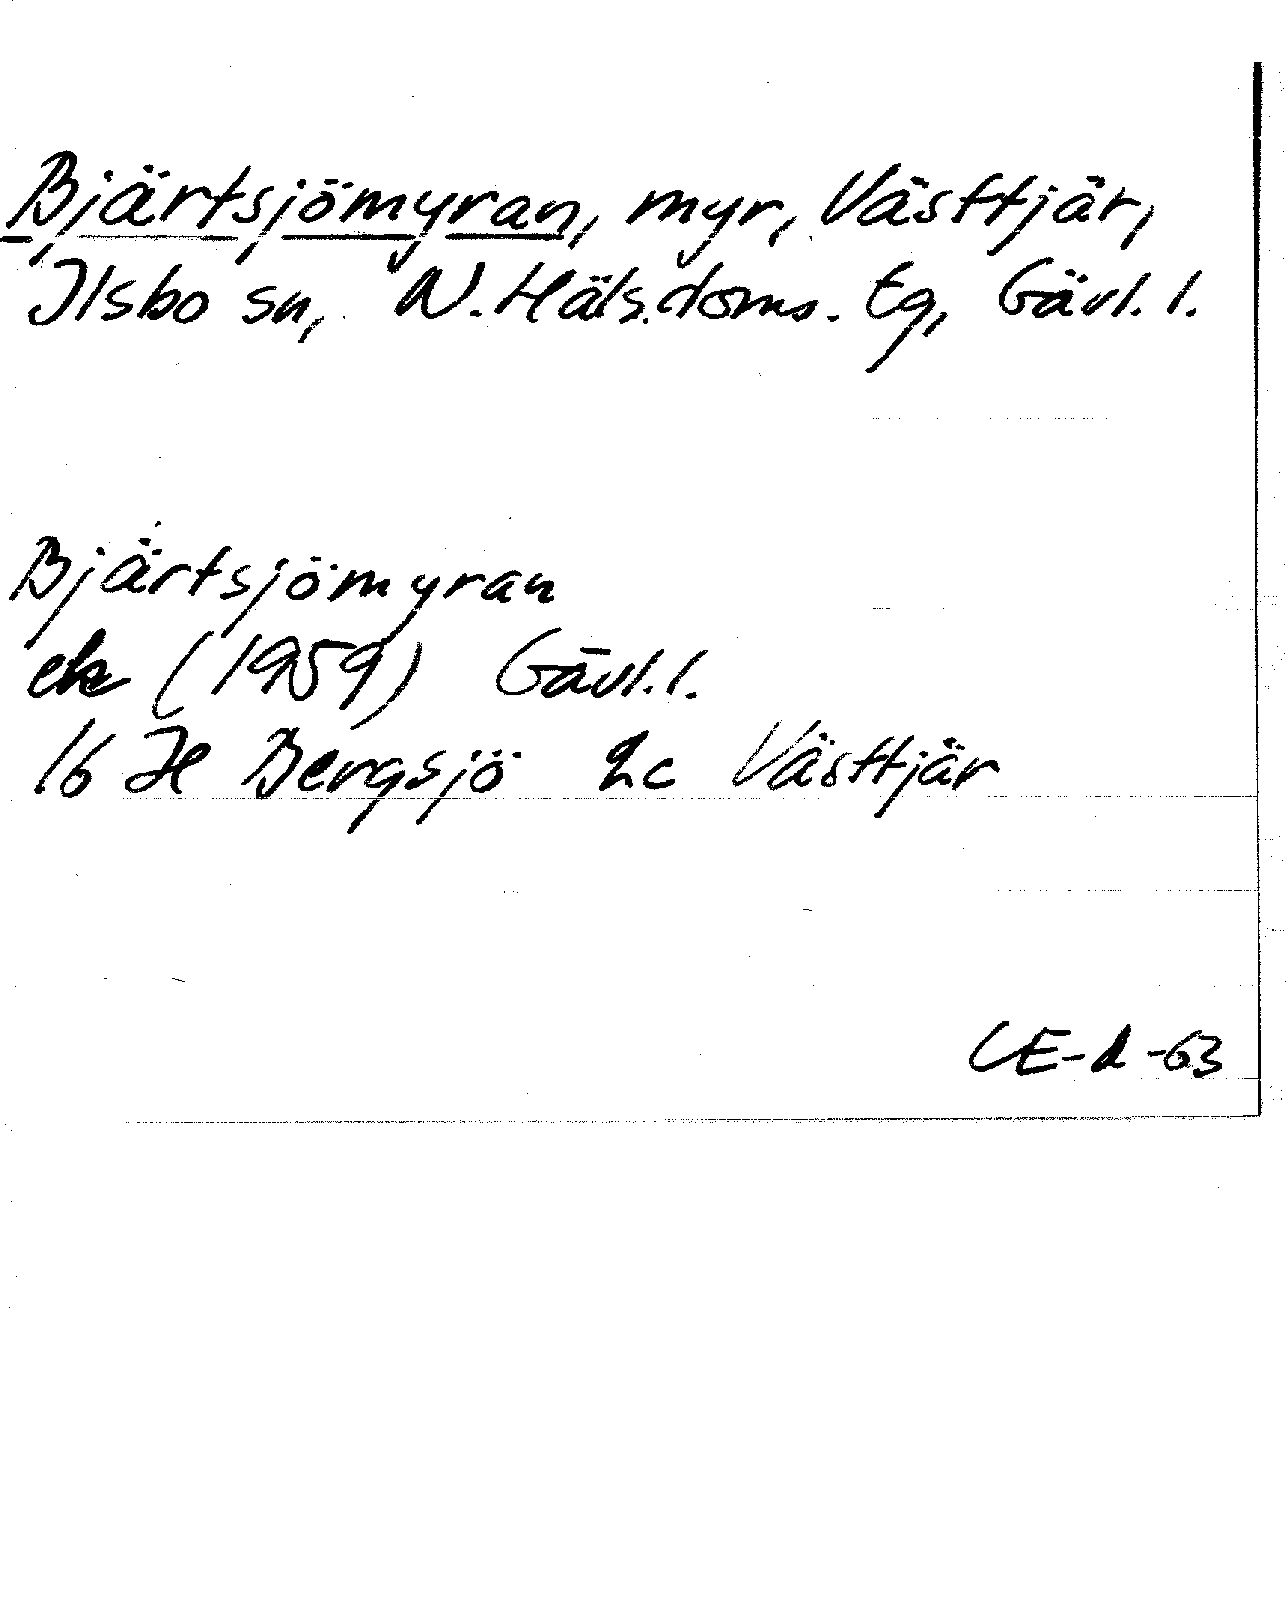 Bjärtsjömyran, myr, Västtjär,
Ilsbo sn, N. Häls. doms. tg, Gävl. l.
Bjärtsjömyran
ek (1959) Gävl. l.
16 H Bergsjö 2c Västtjär
CE-d-63